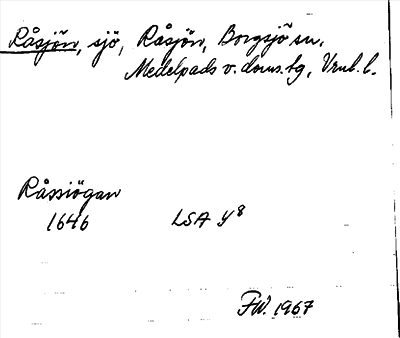 Råsjön, sjö, Råsjön, Borgsjö sn.
Medelpads v. doms.tg, Vnl. l.
Råssiögan
1646 LSA Y8
FW. 1967